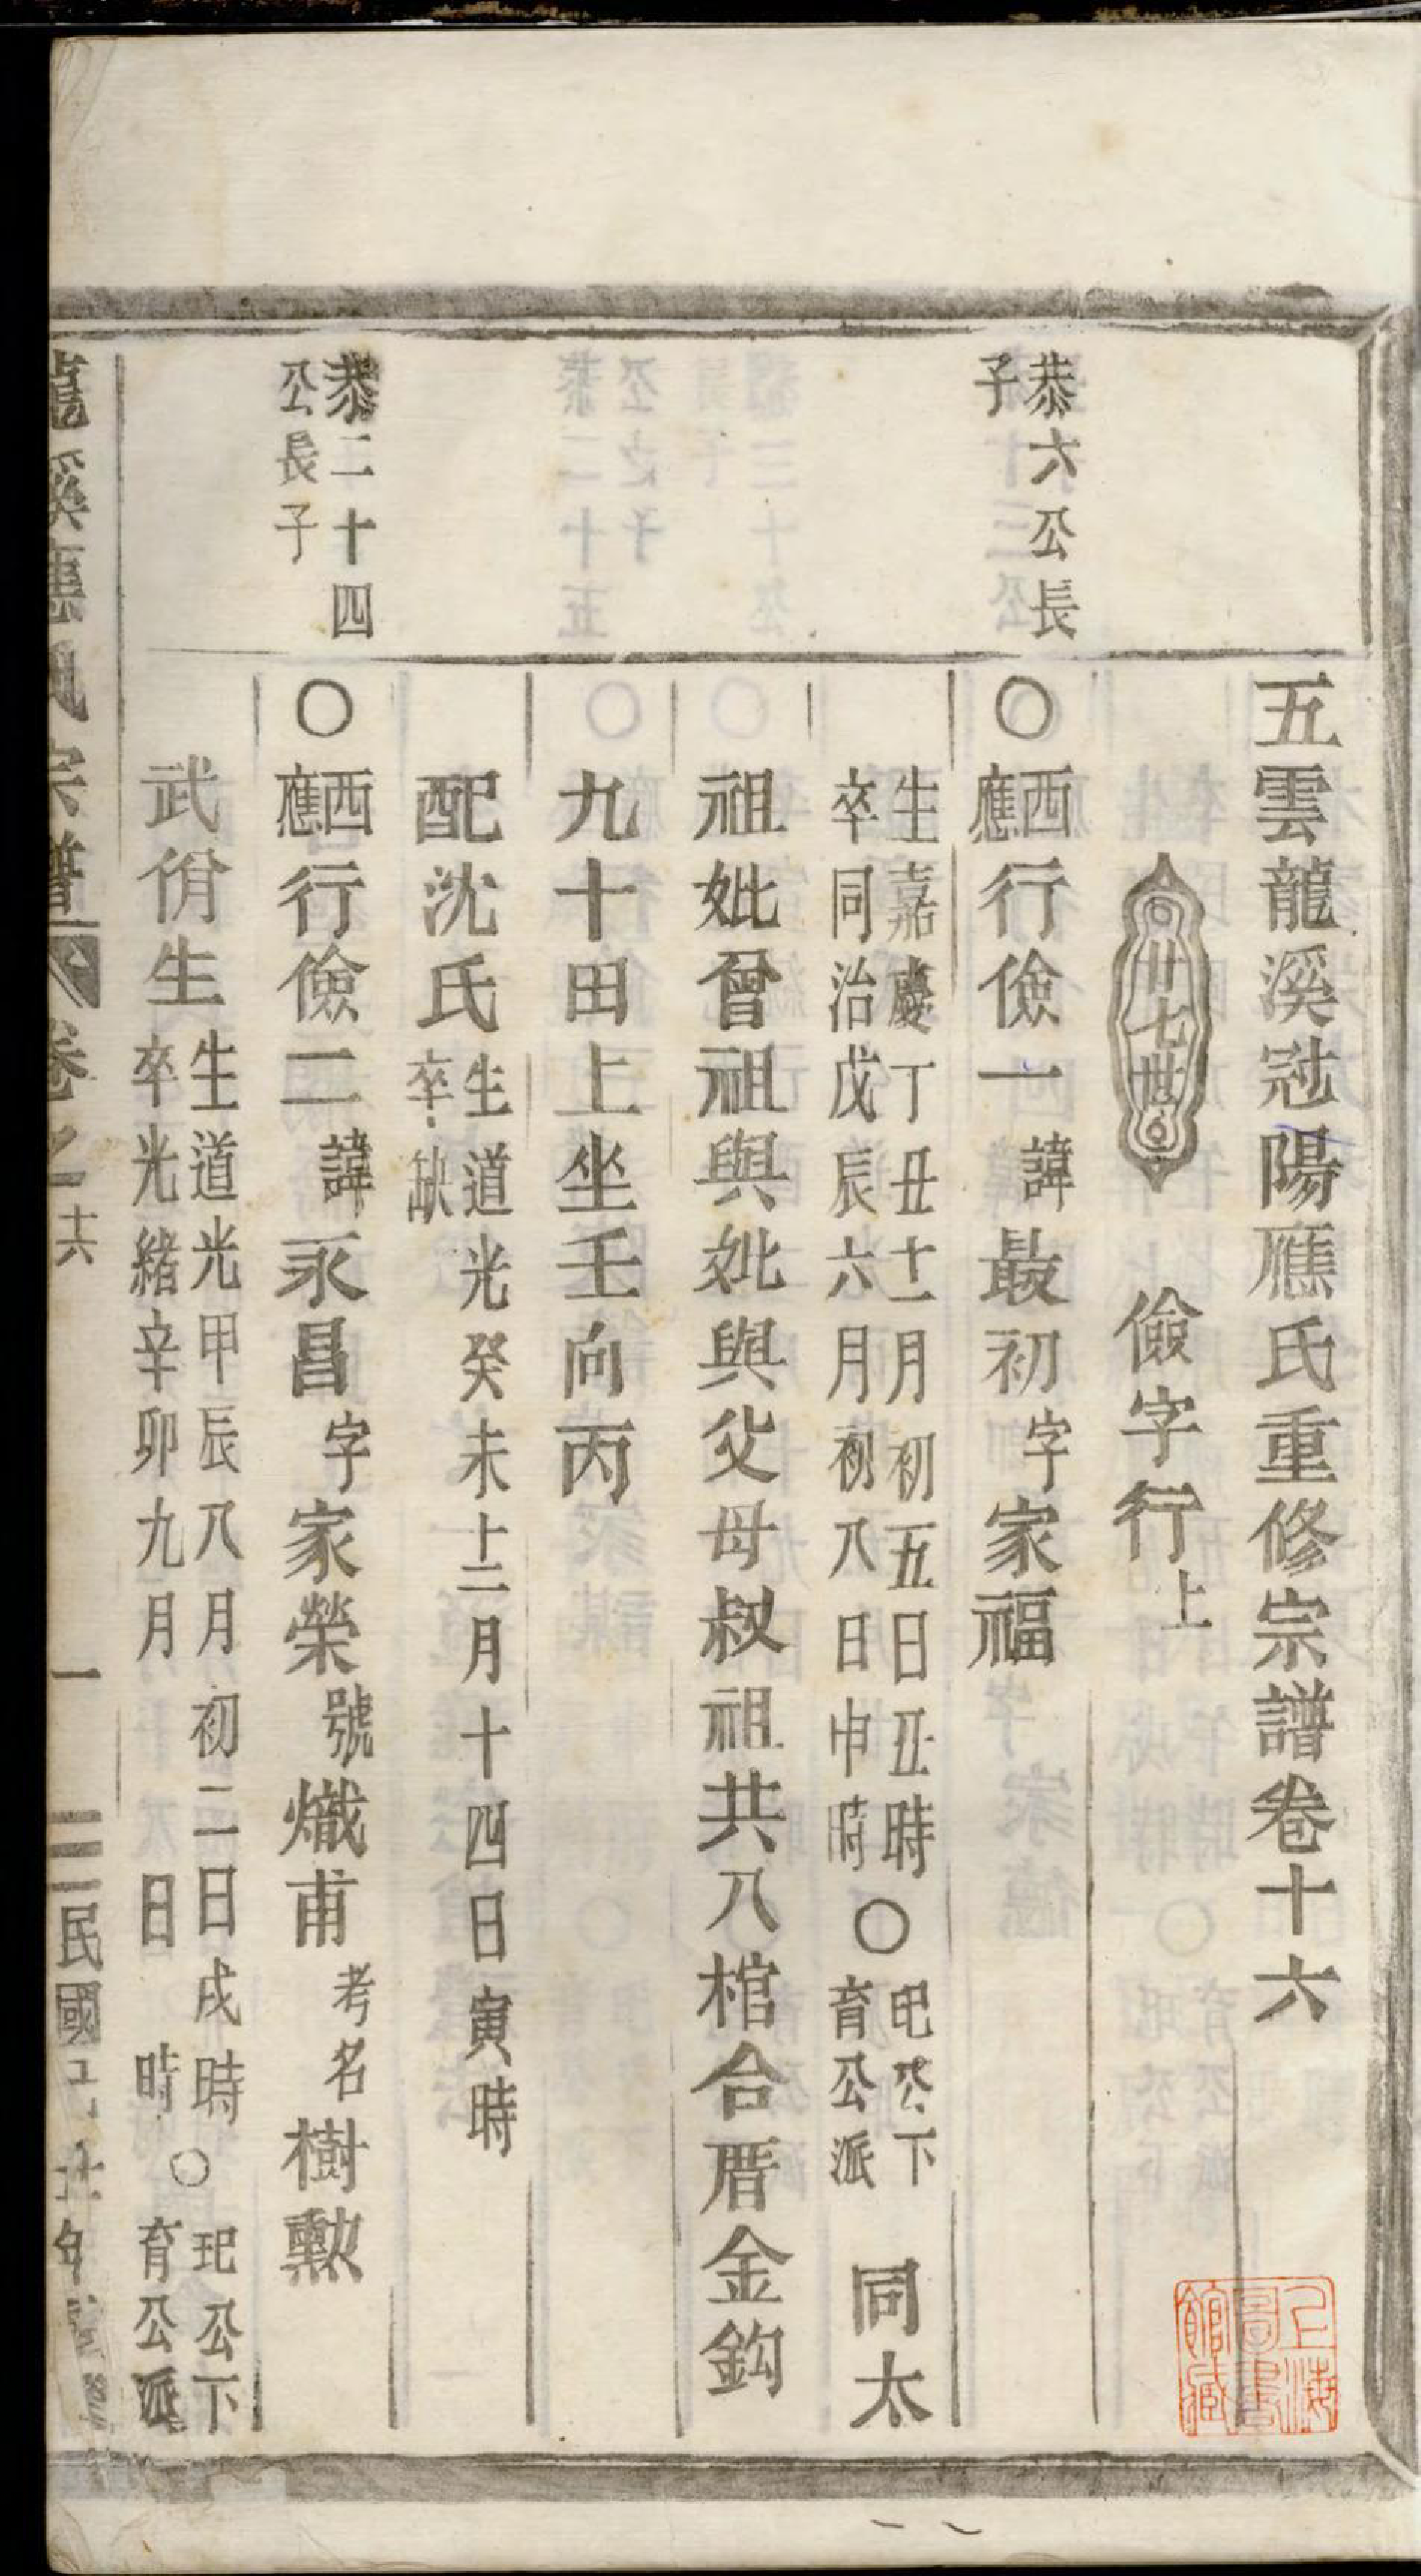 五雲龍溪冠陽應氏重修宗譜卷十六
廿七世
儉字行上
恭六公長
子
〇西應行儉一諱最初字家福
生嘉慶丁丑十一月初五日丑時
卒同治戊辰六月初八日申時
〇玘公下
育公派
同太
祖妣曾祖與妣與父母叔祖共八棺合厝金鈎
九十田上坐壬向丙
配沈氏
生道光癸未十二月十四日寅時
卒缺
恭二十四
公長子
〇西應行儉二諱永昌字家榮號熾甫考名樹勲
武佾生
生道光甲辰八月初二日戌時
卒光緒辛卯九月 日 時
〇玘公下
育公派
龍溪應氏宗譜
卷之十六
一
民國
年
上海圖書館藏